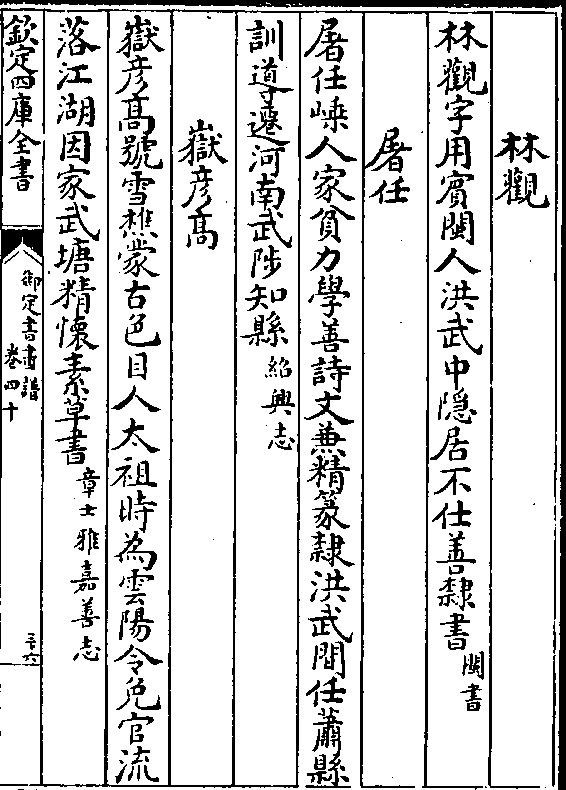 林觀
林觀字用賓閩人洪武中隱居不仕善隸書閩書
屠任
屠任嵊人家貧力學善詩文兼精篆隸洪武間任蕭縣
訓導遷河南武陟知縣紹興志
嶽彦髙
嶽彦髙號雪樵蒙古色目人太祖時為雲陽令免官流
落江湖因家武塘精懷素草書章士雅嘉善志
欽定四庫全書
御定書畫譜
卷四十
三十六